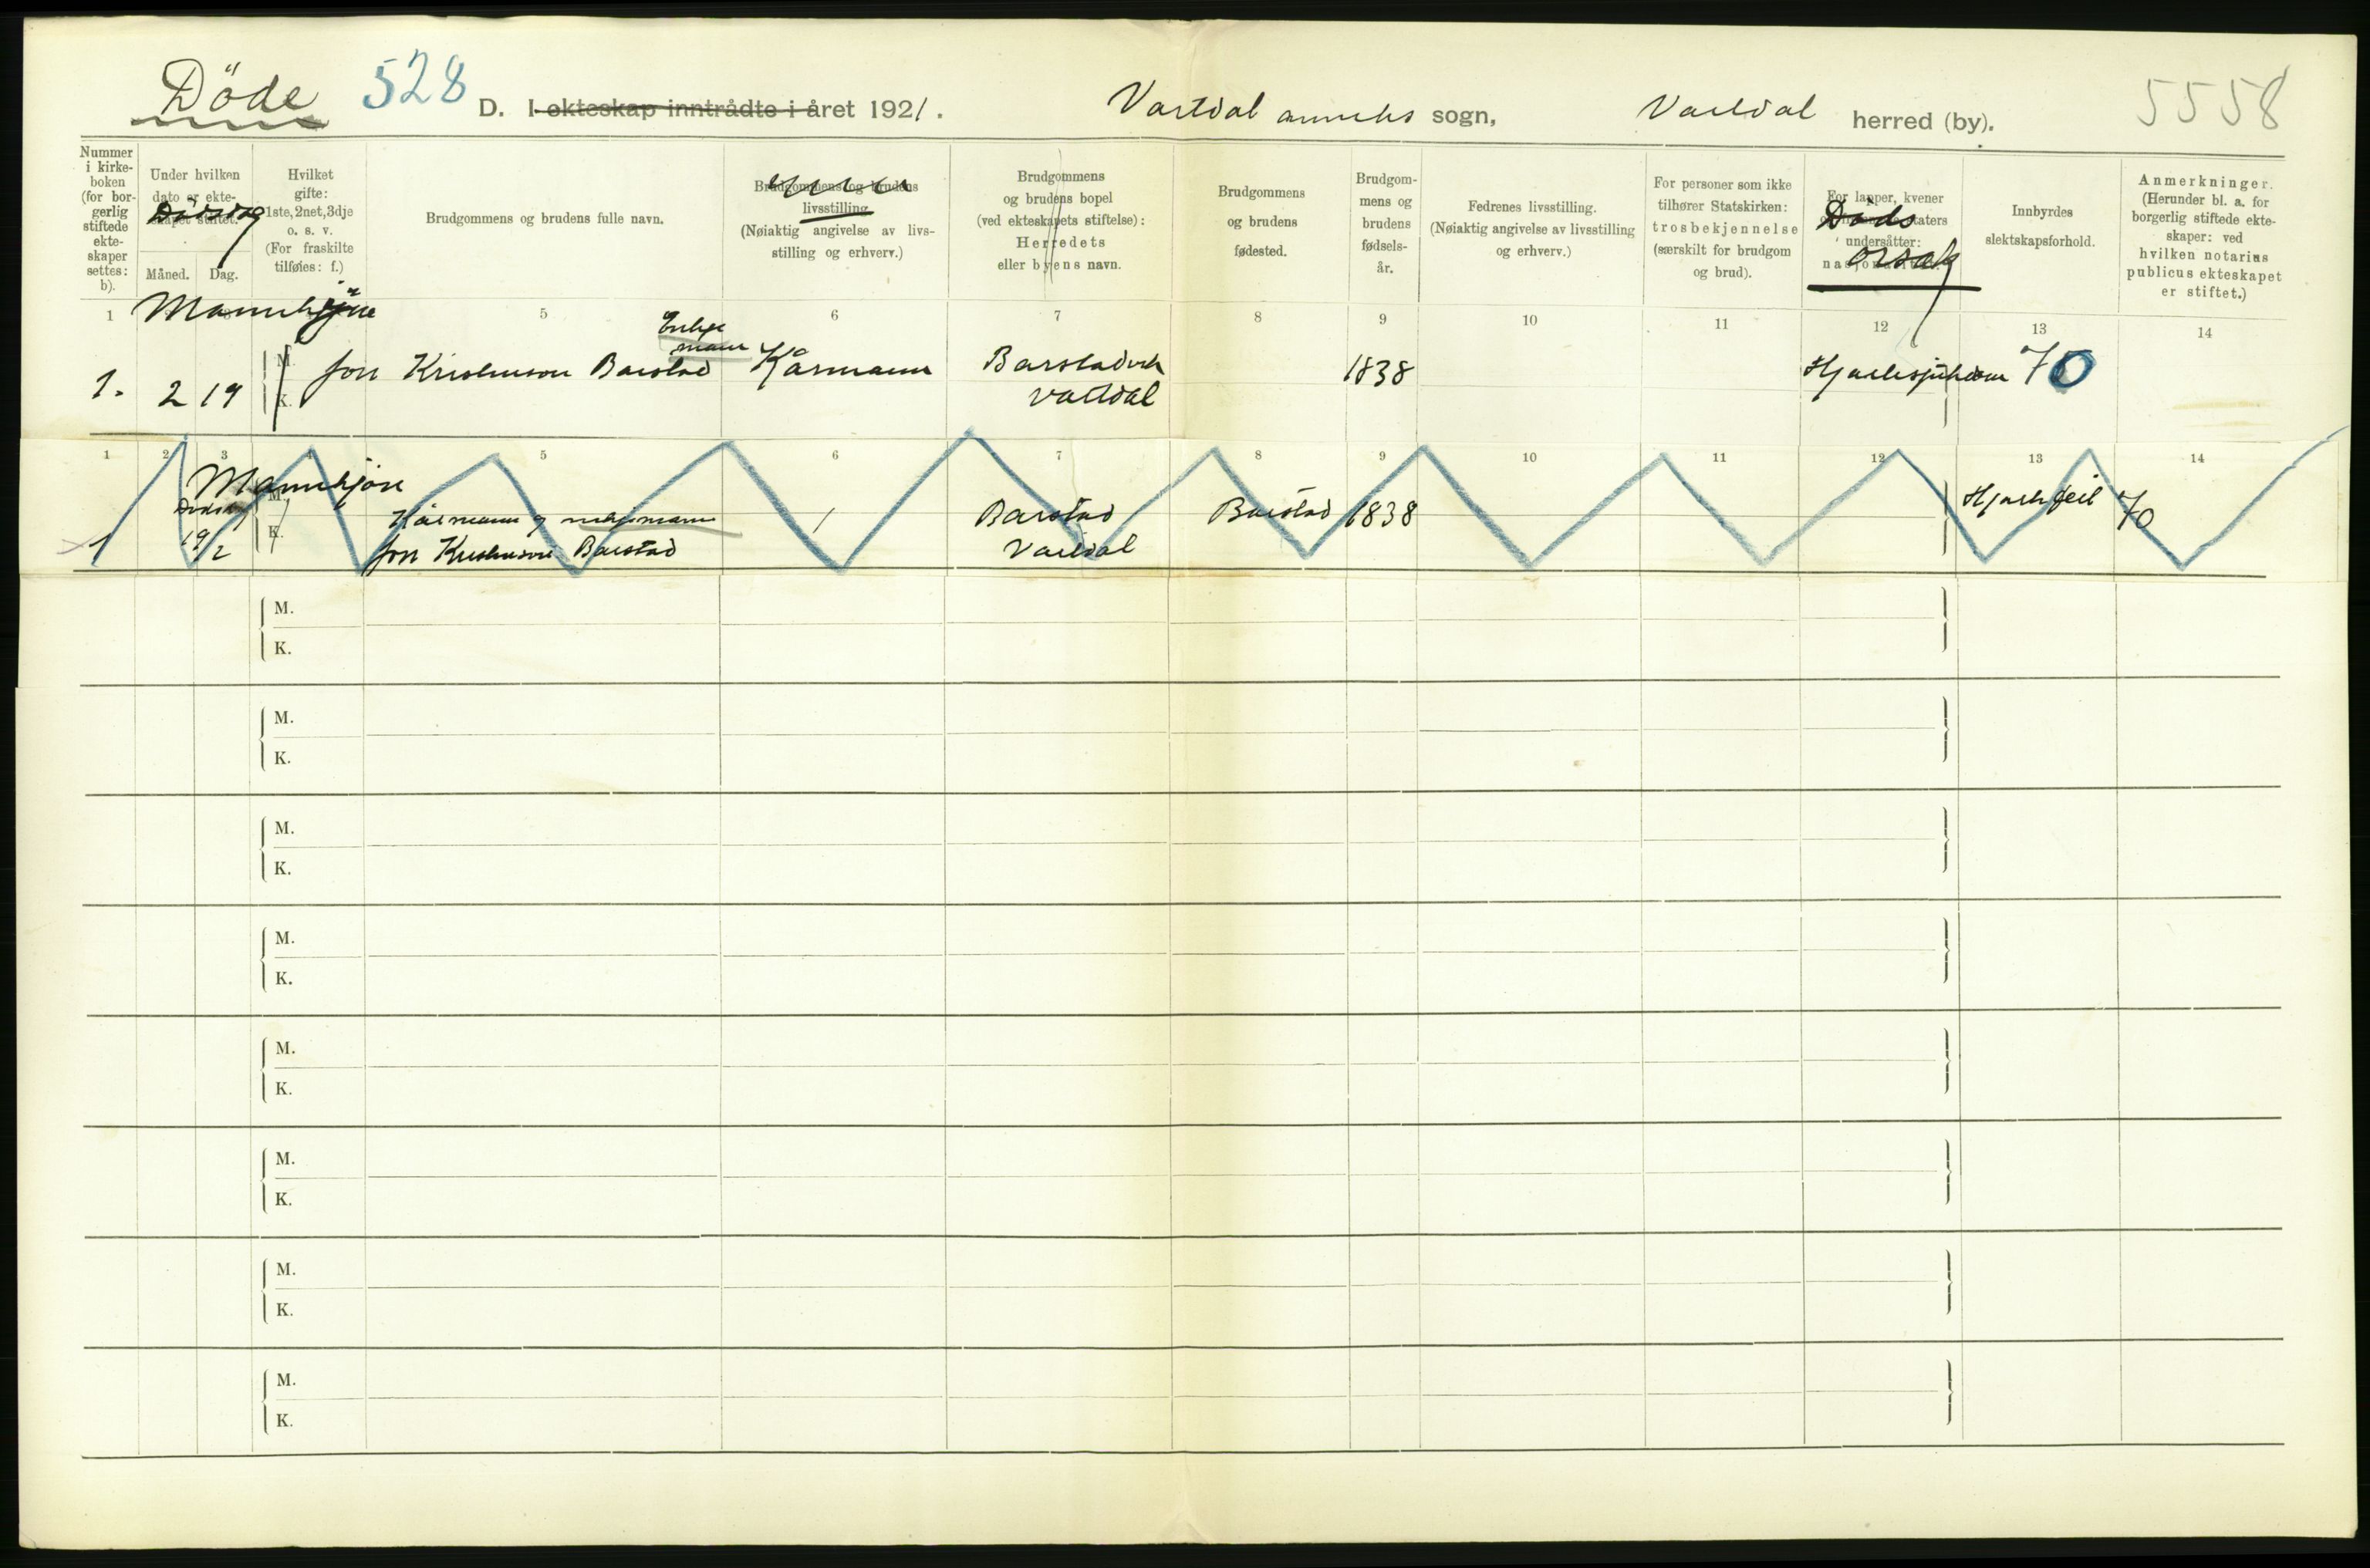 Döde 528 D. I ekteskap inntrådte i året 1921. Vartdal anneks sogn, Vartdal herred (by). 5558
Nummer
i kirke-
boken
(for bor-
gerlig
stiftede
ekte-
skaper
settes:
b).
Under hvilken
dato er ekte-
skapet stiftet.
Dödsdag
Måned. Dag.
Hvilket
gifte:
1ste, 2net, 3dje
o. s. v.
(For fraskilte
tilføies: f.)
Brudgommens og brudens fulle navn.
Brudgommens og brudens
livsstilling
(Nøiaktig angivelse av livs-
stilling og erhverv.)
Brudgommens
og brudens bopel
(ved ekteskapets stiftelse):
Herredets
eller byens navn.
Brudgommens
og brudens
fødested.
Brudgom-
mens og
brudens
fødsels-
år.
Fedrenes livsstilling.
(Nøiaktig angivelse av livsstilling
og erhverv.)
For personer som ikke
tilhører Statskirken:
trosbekjennelse
(særskilt for brudgom
og brud).
For lapper, kvener
undersåtter:
Döds
orsak
Innbyrdes
slektskapsforhold.
Anmerkninger.
(Herunder bl. a. for
borgerlig stiftede ekte-
skaper: ved
hvilken notarius
publicus ekteskapet
er stiftet.)
Mannkjöne
1 5 6 7 8 9 10 11 12 13 14
Enkje
mann
1. 2 19 M. Jon Kristenson Barstad Kårmann Barstadvik 1838 Hjartesjukdom 70
K. Vartdal
1 2 3 4 5 6 7 8 9 10 11 12 13 14
Mannkjöne
Dödsdag M. Kårmann og enkjemann 1 Barstad Barstad 1838 Hjartefeil 70
1 19/2 K. Jon Kristenson Barstad Vartdal
M.
K.
M.
K.
M.
K.
M.
K.
M.
K.
M.
K.
M.
K.
M.
K.